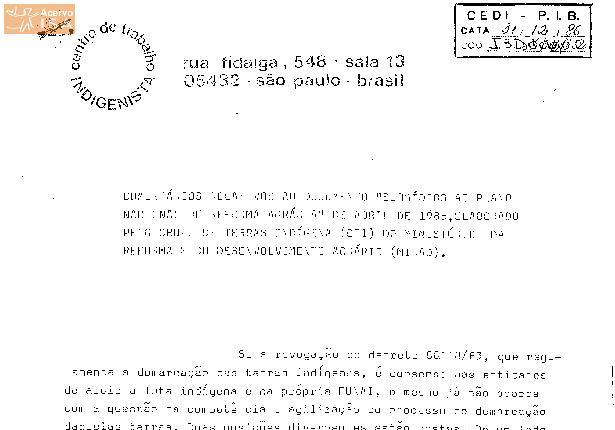 Acervo
centro de trabalho
INDIGENISTA
rua fidalga, 548 - sala 13
05432 - são paulo - brasil
CEDI - P. I. B.
DATA 31, 12, 86
COD.
COMENTÁRIOS RELATIVOS AO DOCUMENTO AO PLANO
NACIONAL DE REFORMA AGRÁRIA DE ABRIL DE 1986, ELABORADO
PELO GRUPO DE TERRAS INDÍGENA (GTI) DO MINISTÉRIO DA
REFORMA E DO DESENVOLVIMENTO AGRÁRIO (MIRAD).
Se a revogação do decreto 88118/83, que regu-
lamenta a demarcação das terras indígenas, é consenso nas entidades
de apoio a luta indígena e na própria FUNAI, o mesmo já não ocorre
com a questão da competência e agilização do processo de demarcação
daquelas terras. Duas posições divergentes estão postas. De um lado